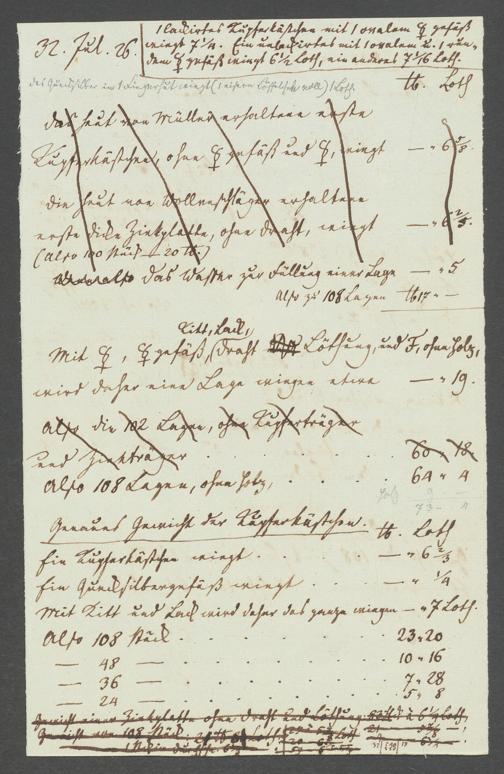 32. Jul. 26.
1 lackirtes Kupferkästchen mit 1 ovalem ☿ gefäß
wiegt 7 1/4. Ein unlackirtes mit 1 ovalem u. 1 run-
dem ☿ gefäß wiegt 6 1/2 Loth, ein anderes 7 1/16 Loth.
das Quecksilber in 1 Fingerhut wiegt (1 eisern Löffelchen voll) 1 Loth
℔. Loth
das heut von Müller erhaltene erste
Kupferkästchen, ohne ☿ gefäß und ☿, wiegt — " 6
die heut von Wollenschläger erhaltene
erste dicke Zinkplatte, ohne Draht, wiegt — " 6 2/3.
(Also 100 Stück — 20 ℔.)
also das Wasser zur Füllung einer Lage — " 5
Also zu 108 Lagen ℔ 17 " —
Kitt, Lack,
Mit ☿, ☿ gefäß, Draht Löthung, und F, ohne Holz,
wird daher eine Lage wiegen etwa — " 19.
Also die 102 Lagen, ohne Kupferträger
und Zinkträger 60 " 18
Also 108 Lagen, ohne Holz, 64 " 4
Holz 9 —
73 - 4
Genaues Gewicht der Kupferkästchen. ℔. Loth
Ein Kupferkästchen wiegt — " 6 2/3
Ein Quecksilbergefäß wiegt — " 1/4
Mit Kitt und Lack wird daher das ganze wiegen — " 7 Loth.
Also 108 Stück 23 " 20
— 48 — 10 " 16
— 36 — 7 " 28
— 24 — 5 " 8
Gewicht einer Zinkplatte ohne Draht und Löthung
Gewicht von 108 Stück